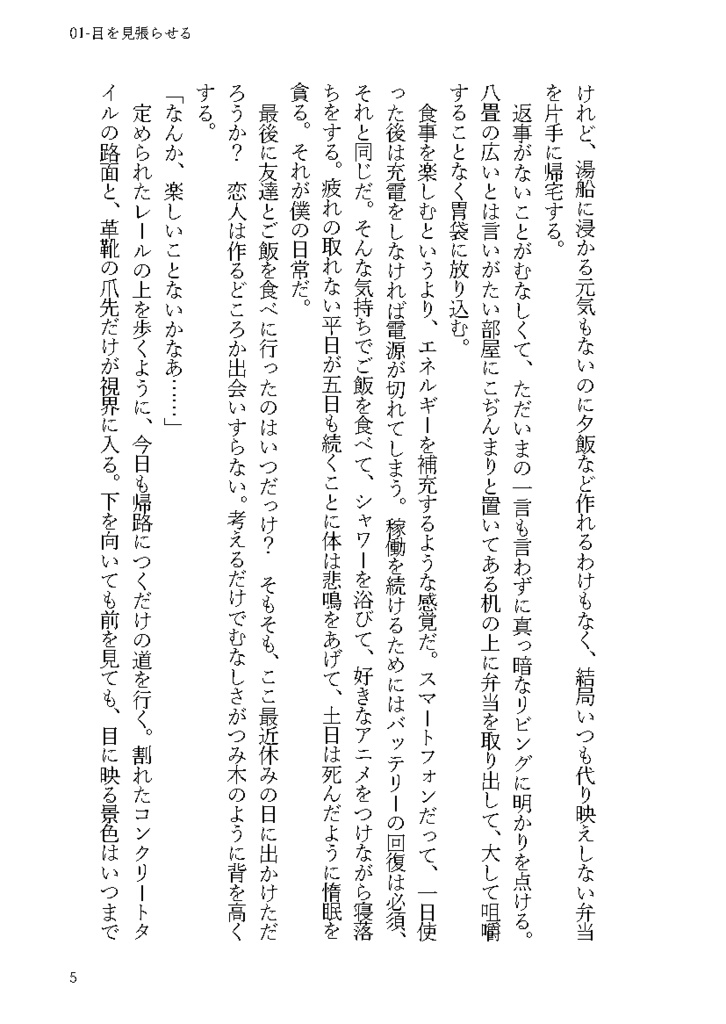 01-目を見張らせる
けれど、湯船に浸かる元気もないのに夕飯など作れるわけもなく、結局いつも代り映えしない弁当
を片手に帰宅する。
　返事がないことがむなしくて、ただいまの一言も言わずに真っ暗なリビングに明かりを点ける。
八畳の広いとは言いがたい部屋にこぢんまりと置いてある机の上に弁当を取り出して、大して咀嚼
することなく胃袋に放り込む。
　食事を楽しむというより、エネルギーを補充するような感覚だ。スマートフォンだって、一日使
った後は充電をしなければ電源が切れてしまう。稼働を続けるためにはバッテリーの回復は必須、
それと同じだ。そんな気持ちでご飯を食べて、シャワーを浴びて、好きなアニメをつけながら寝落
ちをする。疲れの取れない平日が五日も続くことに体は悲鳴をあげて、土日は死んだように惰眠を
貪る。それが僕の日常だ。
　最後に友達とご飯を食べに行ったのはいつだっけ？　そもそも、ここ最近休みの日に出かけただ
ろうか？　恋人は作るどころか出会いすらない。考えるだけでむなしさがつみ木のように背を高く
する。
「なんか、楽しいことないかなあ……」
　定められたレールの上を歩くように、今日も帰路につくだけの道を行く。割れたコンクリートタ
イルの路面と、革靴の爪先だけが視界に入る。下を向いても前を見ても、目に映る景色はいつまで
5